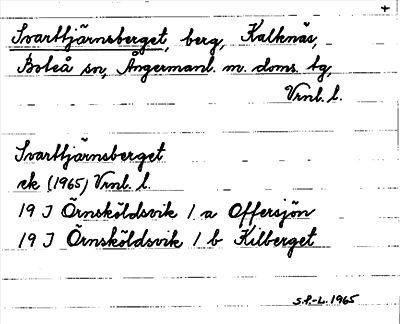 +
Svarttjärnsberget, berg, Kalknäs,
Boteå sn, Ångermanl. m. doms. tg,
Vrnl. l.
Svarttjärnsberget
ek (1965) Vrnl. l.
19 J Örnsköldsvik 1 a Offersjön
19 J Örnsköldsvik 1 b Kilberget
S.P.-L. 1965